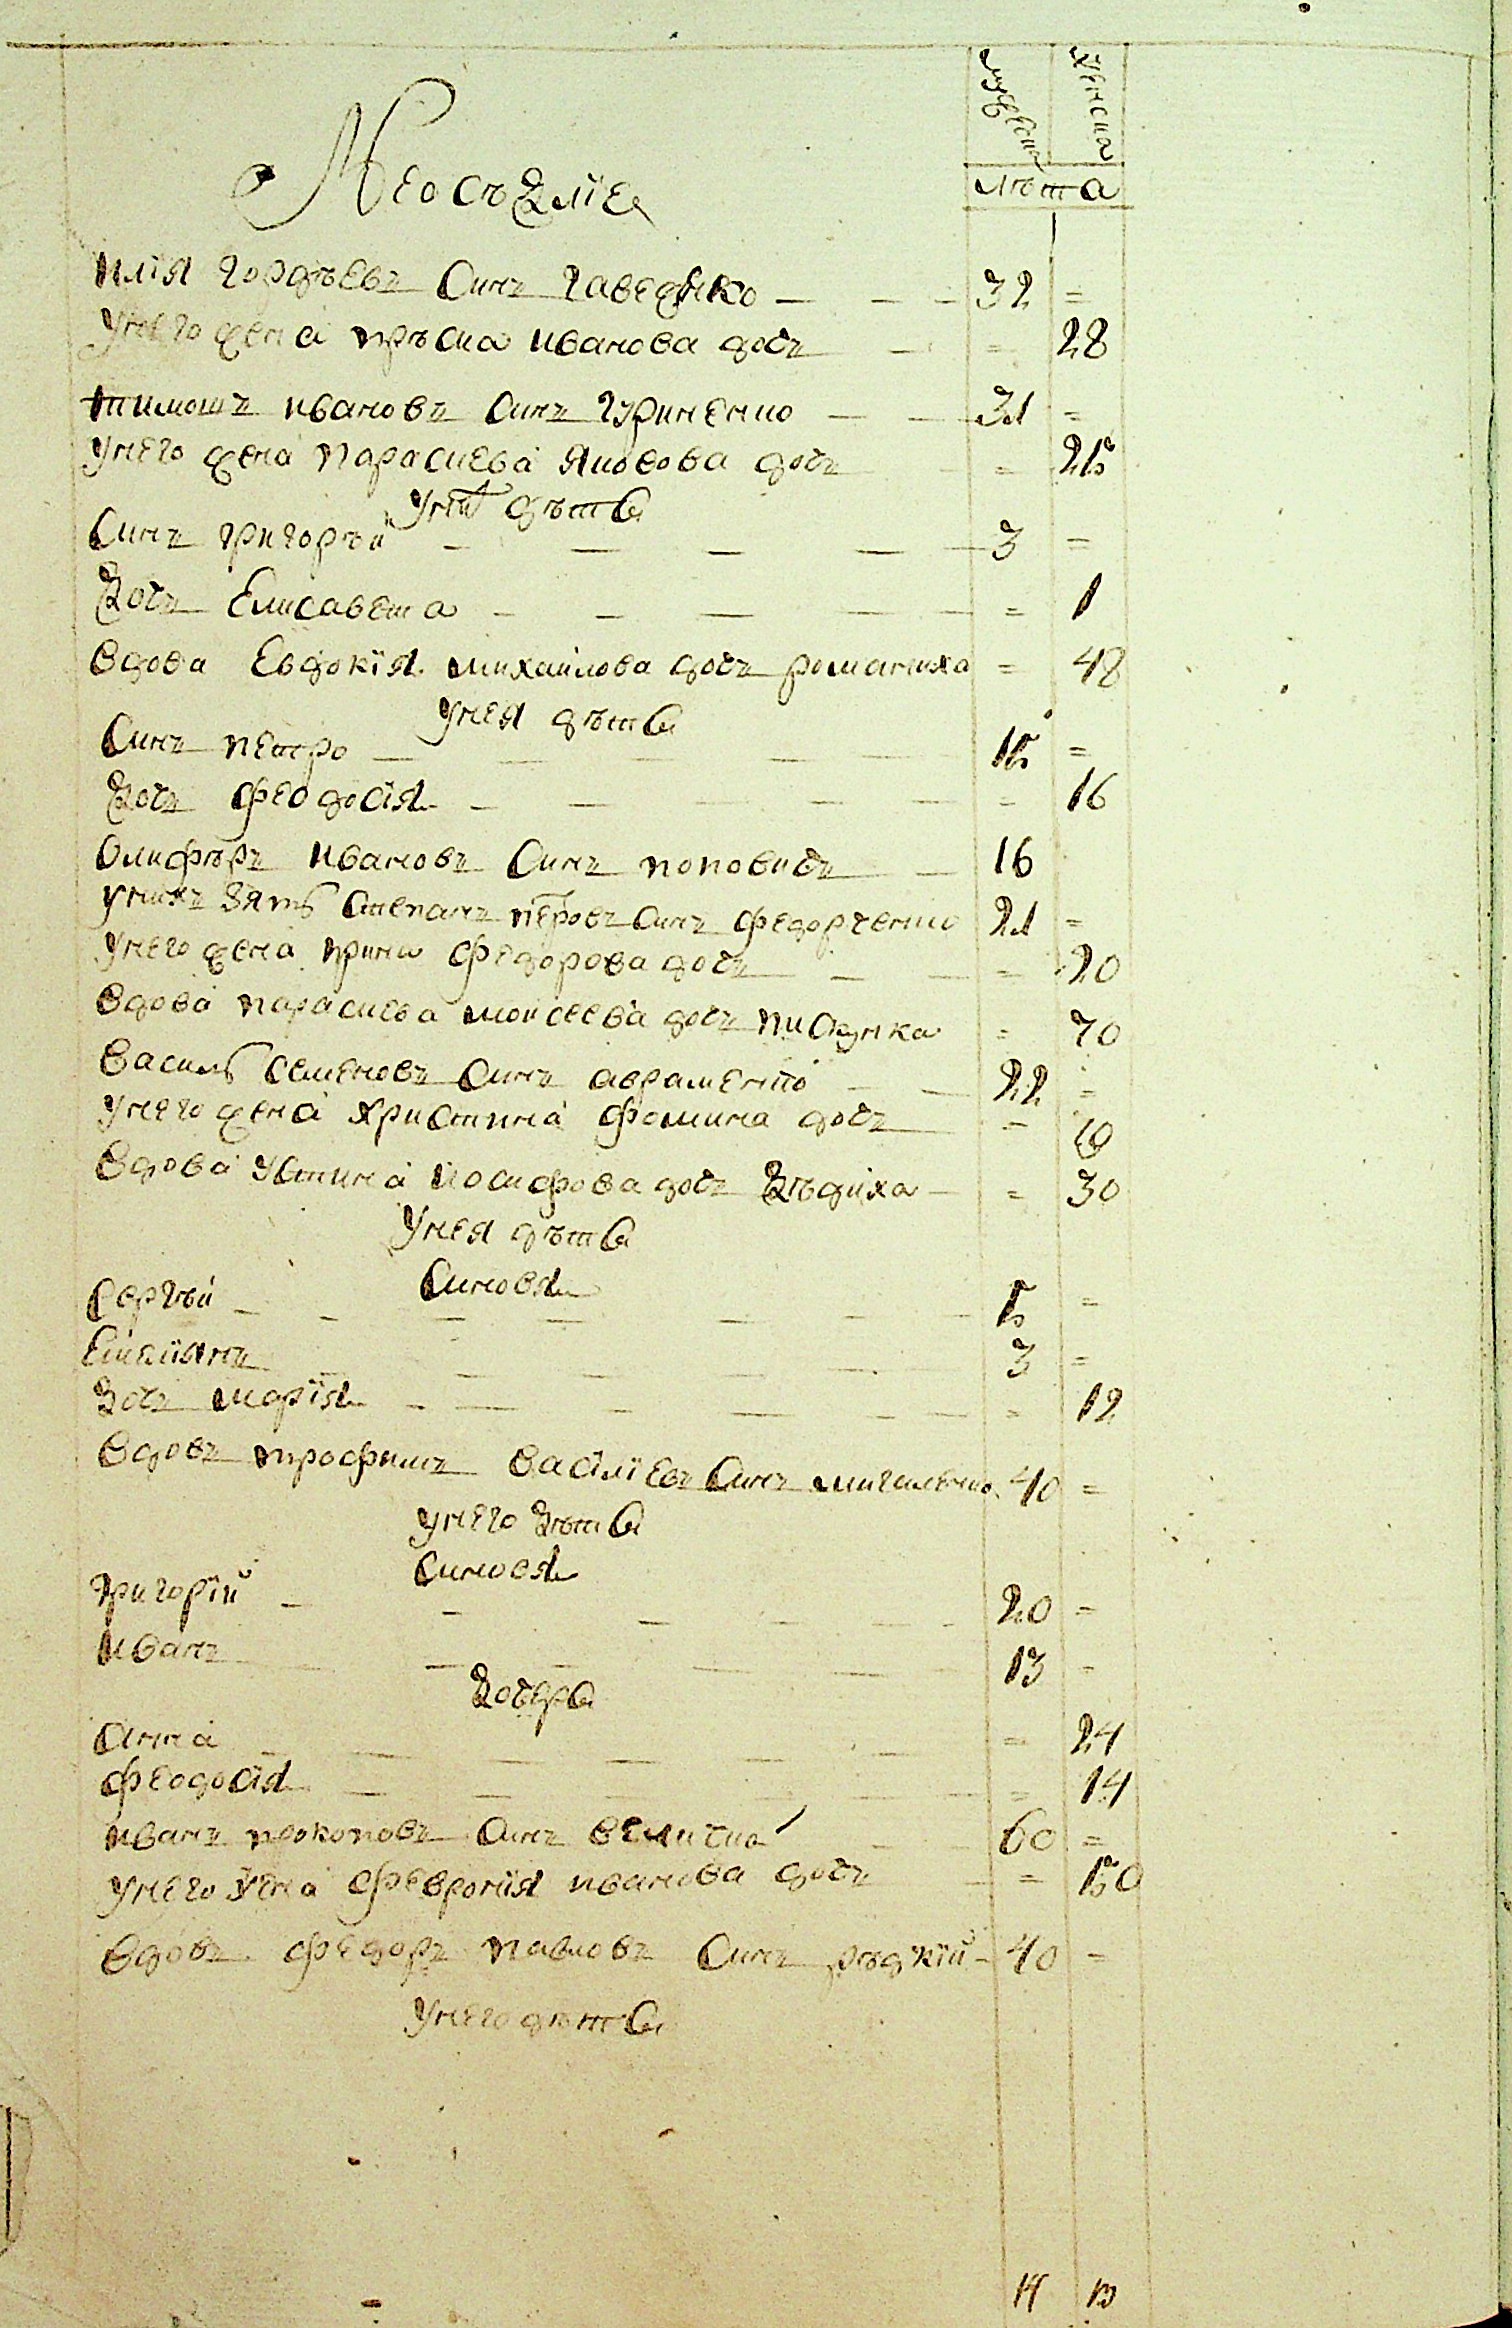 мужеска женска
лѣта
Неосѣдліе
илія гордѣевъ синъ гавенко 32 =
Унего жена прѣска иванова дочъ = 28
тимошъ ивановъ синъ гуриненко 31 =
Унего жена параскева яковова дочъ = 25
Унихъ дѣти
Синъ григорѣй 3 =
дочъ Елисавета = 1
вдова Евдокія михаилова дочъ романиха = 48
Унея дѣти
Синъ петро 15 =
дочъ феодосія = 16
Олифѣръ ивановъ синъ поповичъ 16
Унихъ зять степанъ петровъ синъ федорченко 21 =
Унего жена ирина федорова дочъ = 20
вдова параскева моисеева дочъ = 70
василь семеновъ синъ авраменко 22 =
Унего жена христина фомина дочъ =
вдова устина иосифова дочъ дѣдиха = 30
Унея дѣти
Синовя
Сергѣй 5 =
Емиліянъ 3 =
дочъ марія = 12
вдовъ трофимъ василіевъ синъ 40 =
Унего дѣти
Синовя
григорій 20 =
иванъ 13 =
дочери
анна = 24
феодосія = 14
иванъ прокоповъ синъ величко 60 =
Унего жена февронія иванова дочъ = 50
вдовъ федоръ павловъ синъ рѣдкій 40 =
Унего дѣти
14 13